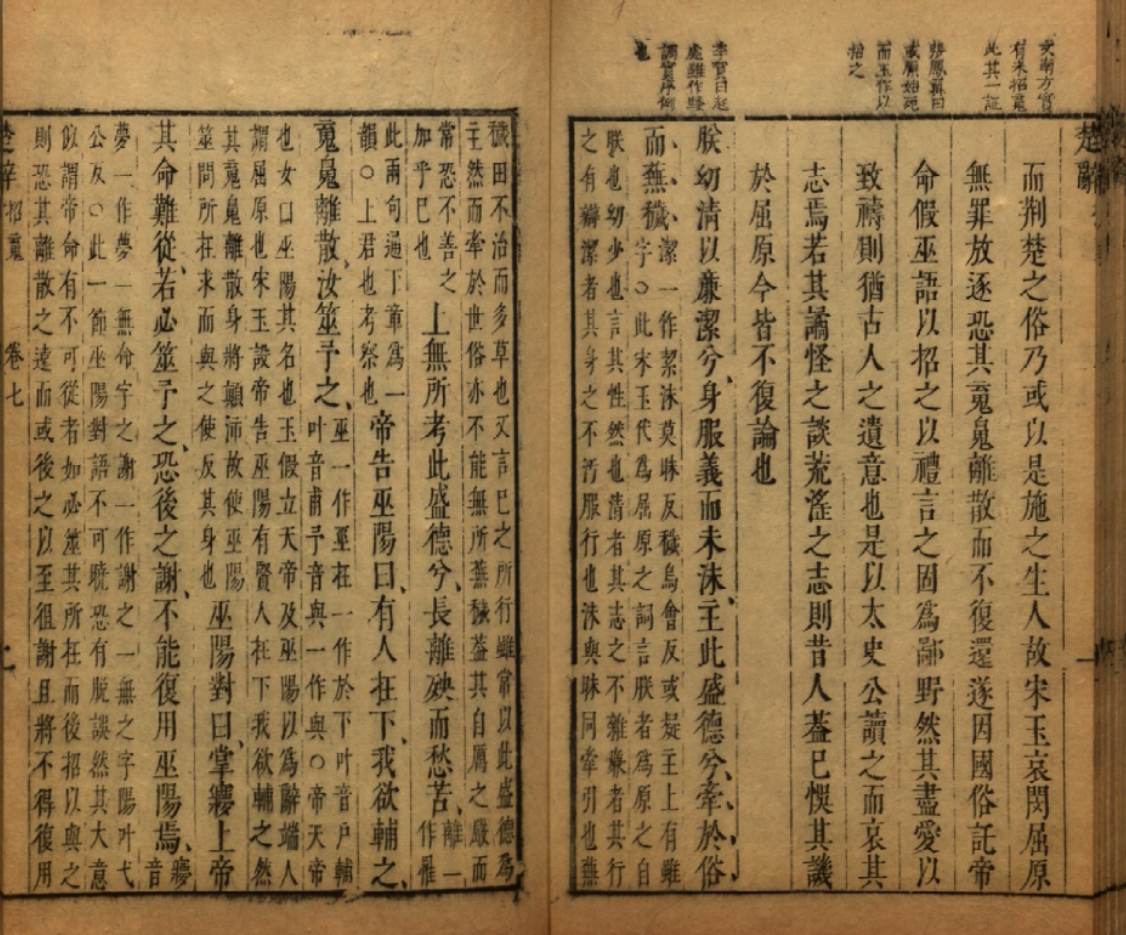 文衡方嘗
有未招魂
此其一証
張鳳翼曰
或原始死
而玉作以
招之
李賀曰起
處雖作騷
調實序例
也
楚辭
而荆楚之俗乃或以是施之生人故宋玉哀閔屈原
無罪放逐恐其䰟䰟離散而不復還遂因國俗託帝
命假巫語以招之以禮言之固爲鄙野然其盡愛以
致禱則猶古人之遺意也是以太史公讀之而哀其
志焉若其譎怪之談荒淫之志則昔人葢巳悞其譏
於屈原今皆不復論也
朕幼清以廉潔兮身服義而未沬主此盛德兮牽於俗
而蕪穢
潔一作絜沬莫昧反穢烏會反或疑主上有雖
字○此宋玉代爲屈原之詞言朕者爲原之自
朕也幼少也言其性然也清者其志之不雜廉者其行
之有辯潔者其身之不汚服行也沬與昧同牽引也蕪
穢田不治而多草也又言巳之所行雖常以此盛德爲
主然而牽於世俗亦不能無所蕪穢葢其自厲之嚴而
常恐不善之
加乎巳也
上無所考此盛德兮長離殃而愁苦
離一
作罹
此兩句通下章爲一
韻○上君也考察也
帝告巫陽曰有人在下我欲輔之
䰟魄離散汝筮予之
巫一作巠在一作於下叶音戶輔
叶音甫予音與一作與○帝天帝
也女曰巫陽其名也玉假立天帝及巫陽以爲辭端人
謂屈原也宋玉設帝告巫陽有賢人在下我欲輔之然
其䰟魄離散身將顛沛故使巫陽
筮問所在求而與之使反其身也
巫陽對曰掌㝱上帝
其命難從若必筮予之恐後之謝不能復用巫陽焉
㝱
音
夢一作夢一無命字之謝一作謝之一無之字陽叶弋
公反○此一節巫陽對語不可曉恐有脫誤然其大意
似謂帝命有不可從者如必筮其所在而後招以與之
則恐其離散之遠而或後之以至徂謝且將不得復用
楚辭 招䰟 卷七